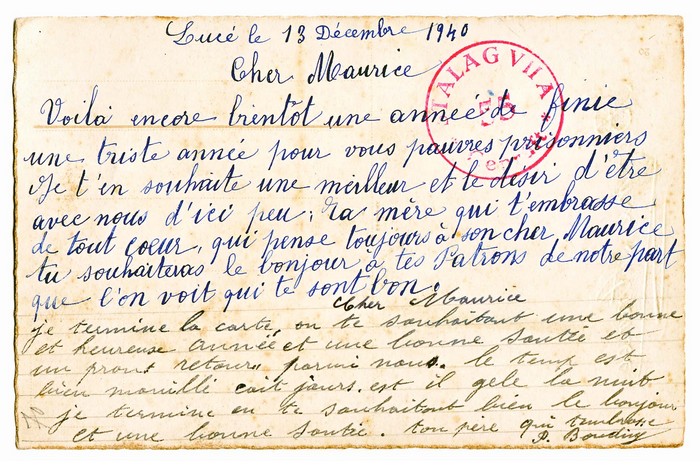 Lucé le 13 Décembre 1940
Cher Maurice
TALAG VII A
55
Voilà encore bientôt une année de finie
une triste année pour vous pauvres prisonniers
Je t'en souhaite une meilleur et le désir d'être
avec nous d'ici peu, ta mère qui t'embrasse
de tout coeur, qui pense toujours à son cher Maurice
tu souhaiteras le bonjour à tes Patrons de notre part
que l'on voit qui te sont bon.
Cher Maurice
je termine la carte en te souhaitant une bonne
et heureuse année et une bonne santée et
un pront retour parmi nous. le temp est
bien mouillé cait jours. est il gele la nuit
je termine en te souhaitant bien le bonjour
et une bonne santée. ton père qui tembrasse